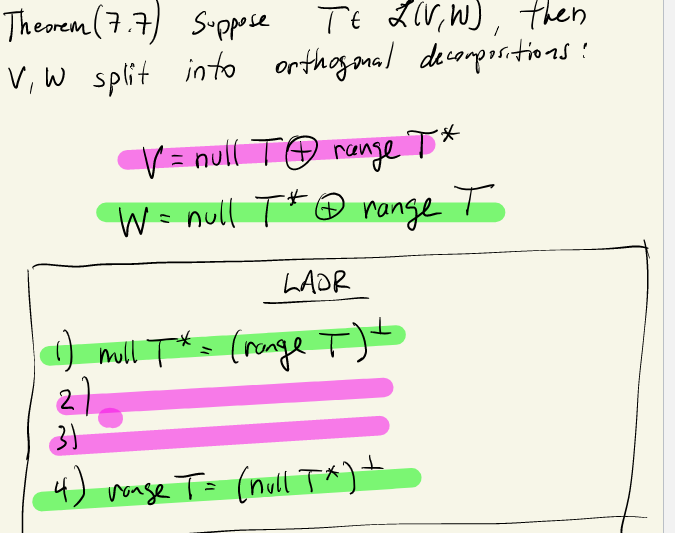 Theorem (7.7) Suppose T ∈ ℒ(V,W), then
V, W split into orthogonal decompositions:
V = null T ⊕ range T*
W = null T* ⊕ range T
LADR
1) null T* = (range T)^⊥
2)
3)
4) range T = (null T*)^⊥